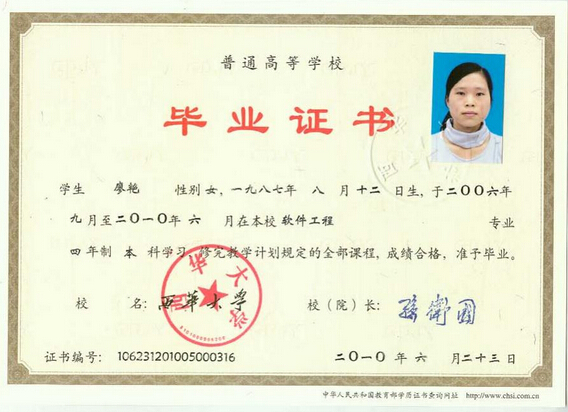 普通高等学校
毕业证书
学生 廖艳 性别 女，一九八七年 八 月 十二 日生，于二00六年
九 月至二0一0年 六 月在本校 软件工程 专业
四 年制 本 科学习，修完教学计划规定的全部课程，成绩合格，准予毕业。
校 名：西华大学 校（院）长：孙卫国
证书编号： 106231201005000316 二0一0年 六 月二十三日
中华人民共和国教育部学历证书查询网址 http://www.chsi.com.cn